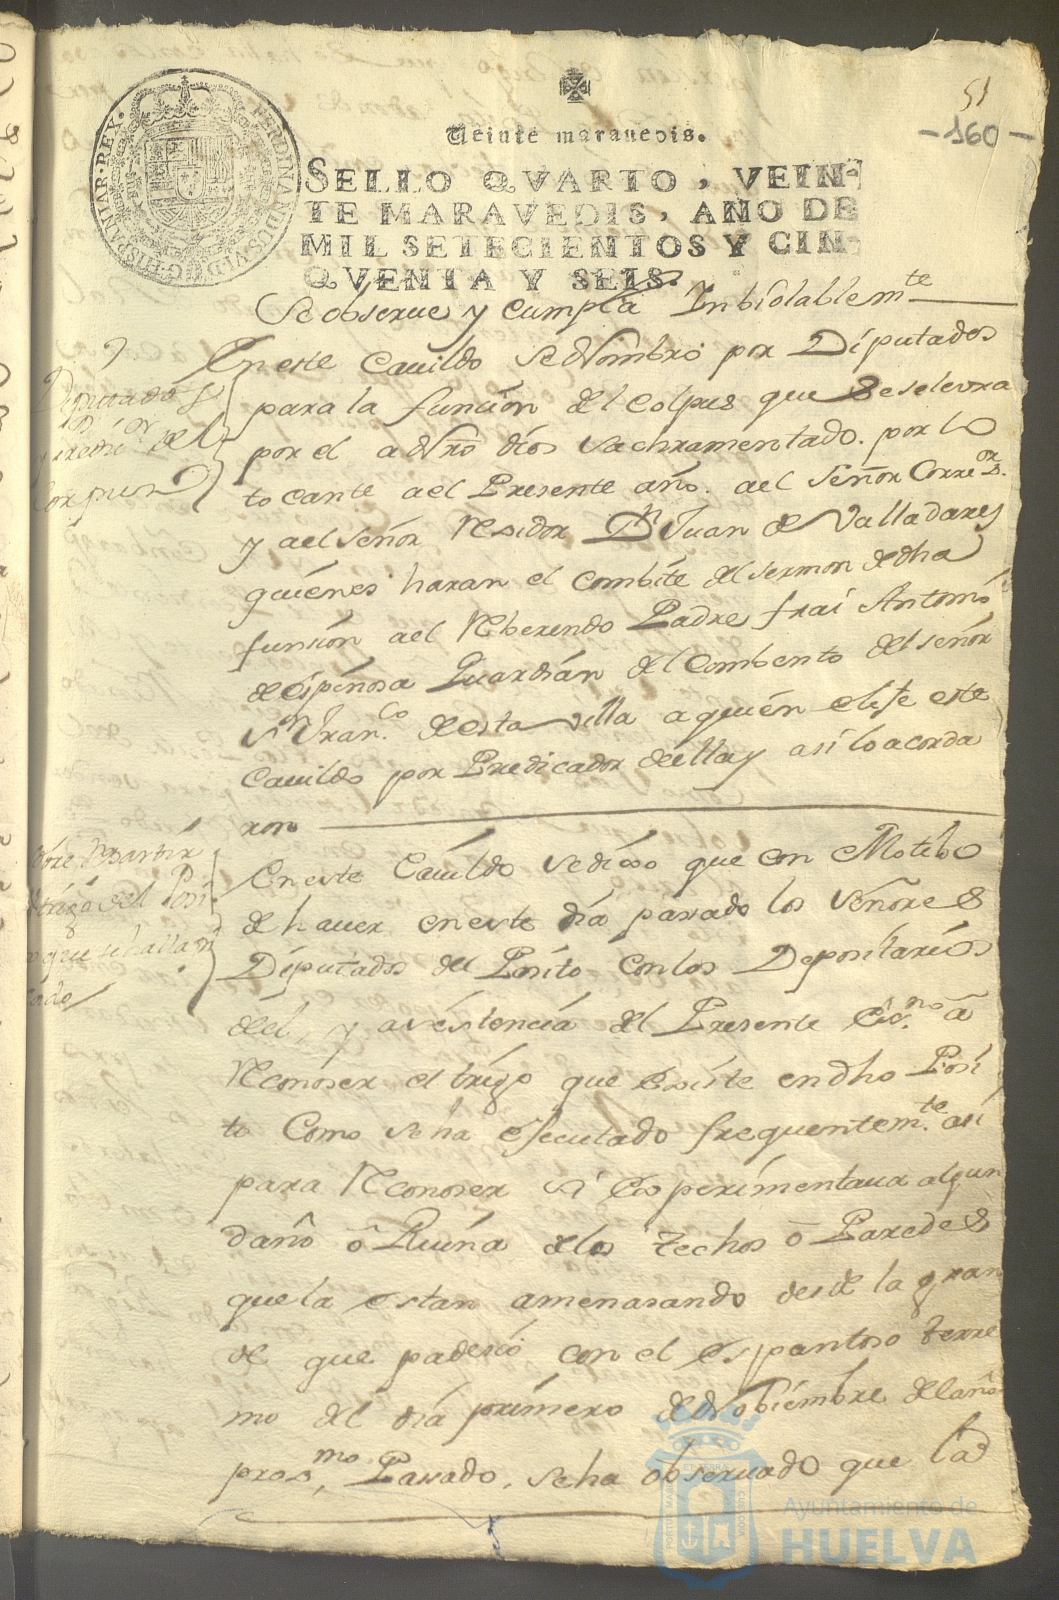 51
-160-
Veinte maravedis.
SELLO QVARTO, VEIN-
TE MARAVEDIS, AÑO DE
MIL SETECIENTOS Y CIN-
QVENTA Y SEIS.
FERDINANDUS.VI.D.G.HISPANIAR.REX.
Se observe y cumpla Inbiolablemte
Diputados
y Predicor del
Corpus
En este Cauildo se Nombro por Diputados
para la funcion del Colpus que se selevra
por el a Nro Dios Sachramentado. por lo
tocante a el Presente año. a el Señor Correor
y a el señor Residor Dn Juan de Valladares
quienes haran el combite del sermon de dha
funsion a el Rberendo Padre frai Antonio
de espinosa Guardian del Combento del señor
Sn Franco. de esta villa a quien elije este
Cauildo por Predicador de ella y asi lo acorda
ron
sobre Repartir
el trigo del Posi
to que se halla
En este Cauildo se dixo que con Motibo
de hauer en este dia pasado los Señores
Diputados del Posito con los Depositarios
de el, y asistencia del Presente Essno. a
Reconoser el trigo que existe en dho Posi
to Como se ha ejecutado frequentemte. asi
para Reconoser si esperimentaua algun
daño o Ruina de los techos o Paredes
que la estan amenasando desde la gran
de que padesio con el espantoso terre
mo del dia primero de Nobiembre del año
prosmo, Pasado, se ha observado que la
Ayuntamiento de
HUELVA